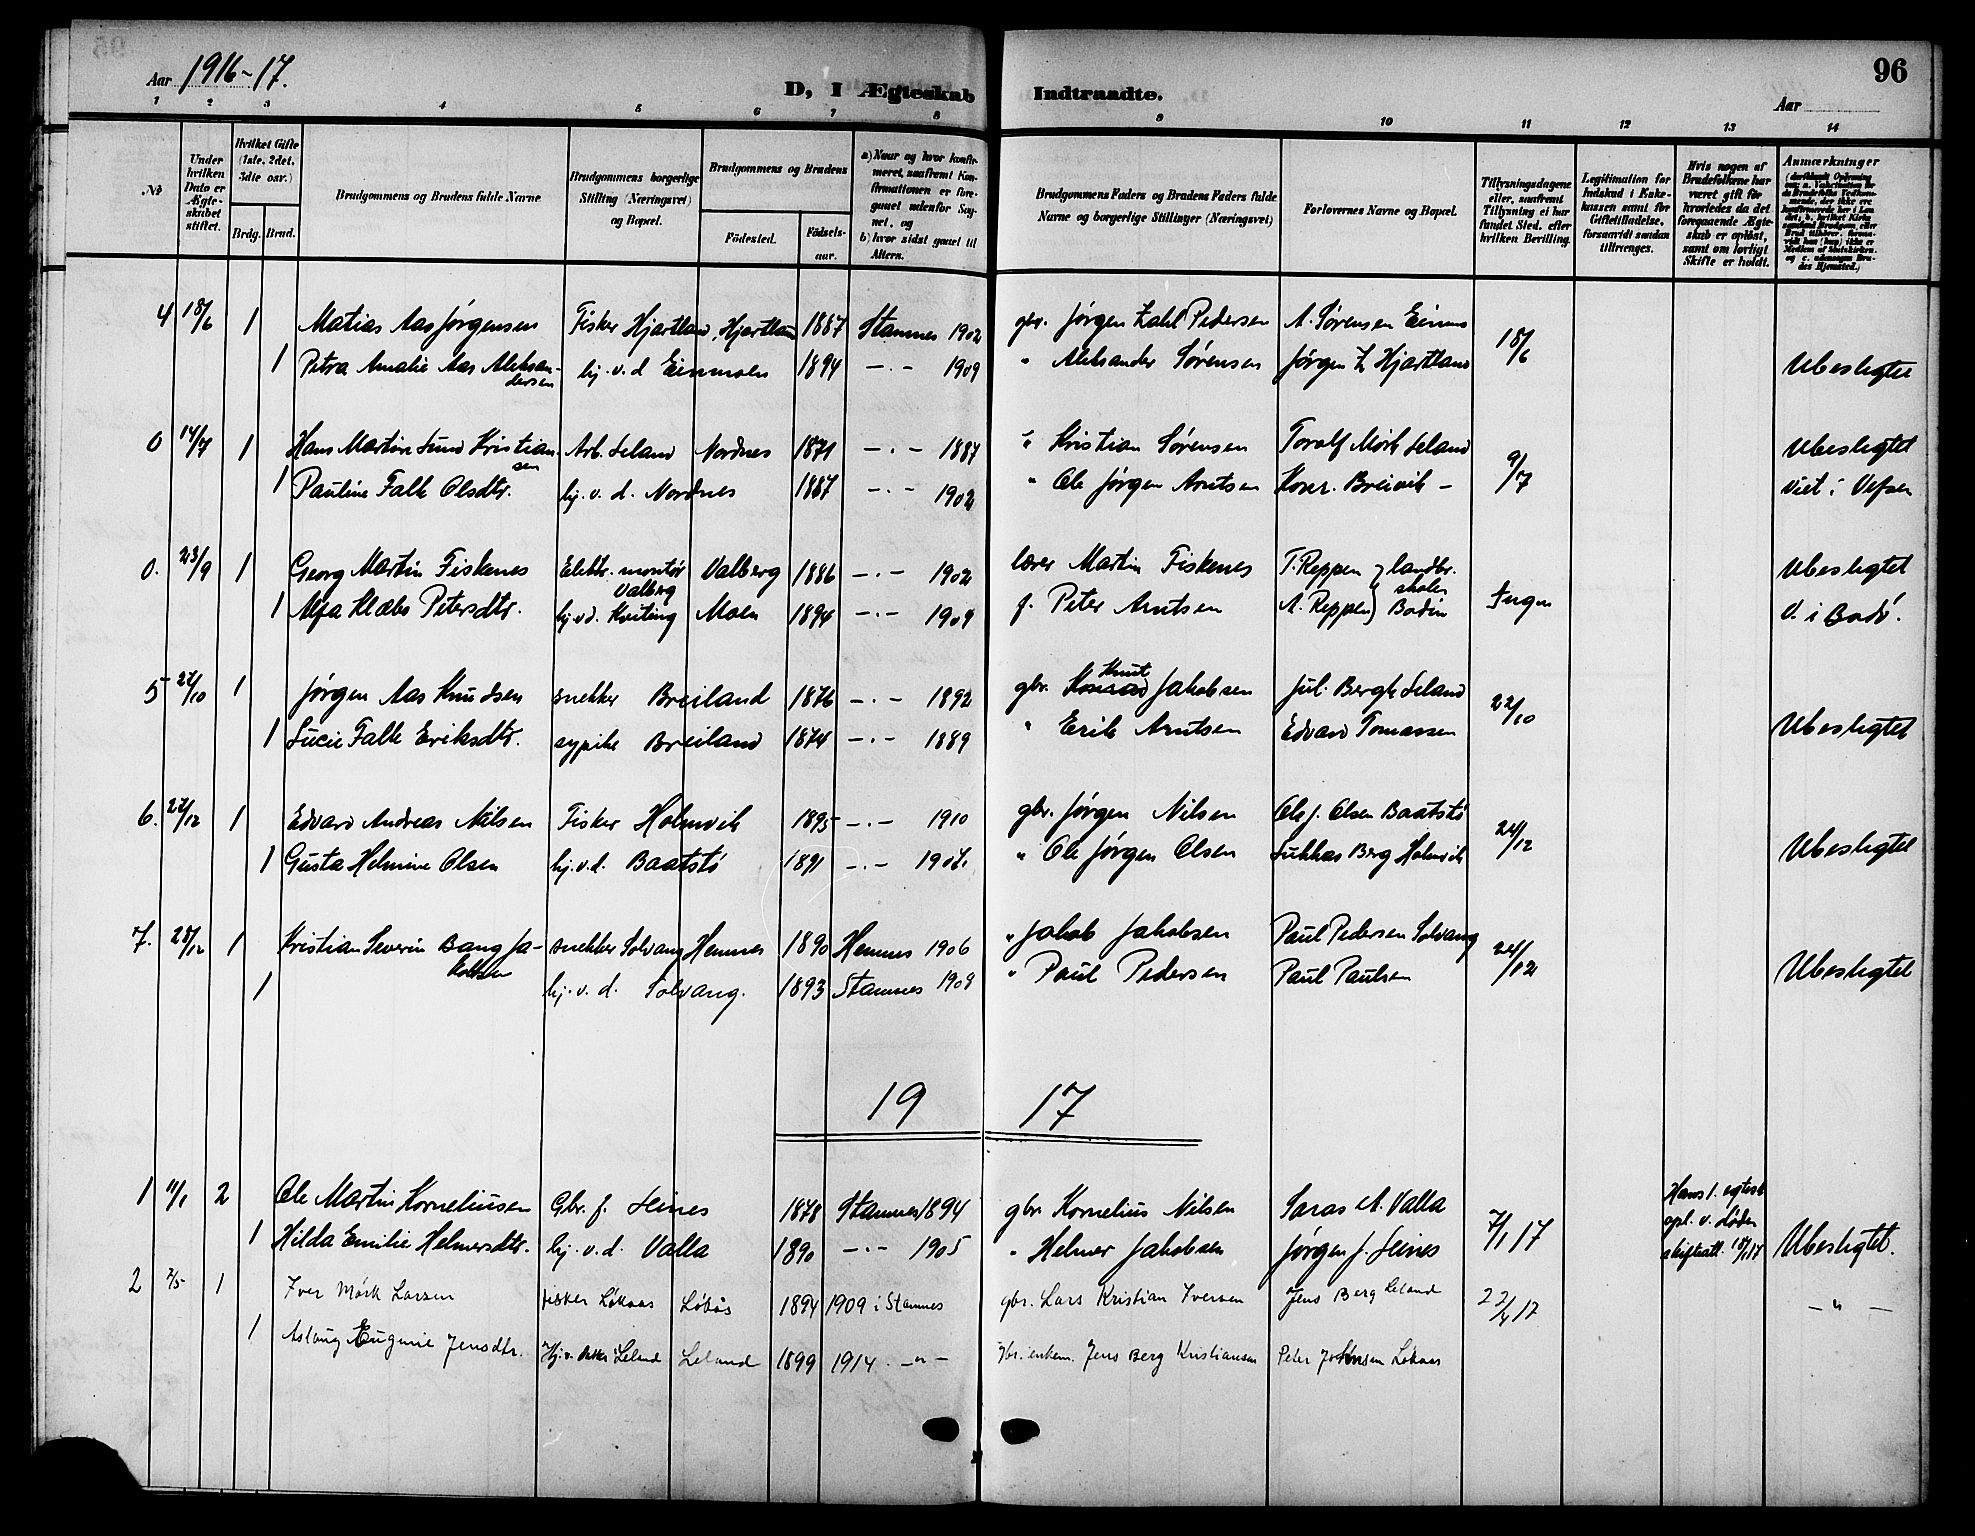 96
Aar 1916-17.
D, I Ægteskab Indtraadte.
Aar
1 2 3 4 5 6 7 8 9 10 11 12 13 14
№
Under hvilken Dato er Ægteskabet stiftet.
Hvilket Gifte (1ste, 2det, 3die osv.)
Brdg. Brud.
Brudgommens og Brudens fulde Navne
Brudgommens borgerlige Stilling (Næringsvei) og Bopæl.
Brudgommens og Brudens
Fødested. Fødselsaar.
a) Naar og hvor konfirmeret, saafremt Konfirmationen er foregaaet udenfor Sognet, og
b) hvor sidst gaaet til Alters.
Brudgommens Faders og Brudens Faders fulde Navne og borgerlige Stillinger (Næringsvei)
Forlovernes Navne og Bopæl.
Tillysningsdagene eller, saafremt Tillysning ei har fundet Sted, efter hvilken Bevilling.
Legitimation for Indskud i Enkekassen samt for Giftetilladelse, forsaavidt saadan tiltrænges.
Hvis nogen af Brudefolkene har været gift før hvorledes da det foregaaende Ægteskab er opløst, samt om lovligt Skifte er holdt.
Anmærkninger
4 18/6 1 Matias Aas Jørgensen Fisker Hjartland, Hjartland 1887 Stamnes 1902 gbr. Jørgen Zahl Pedersen A. Sørensen Einmo 18/6
1 Petra Amalie Aas Aleksandersen hj. v. d Einmoen 1894 —"— 1909 " Aleksander Sørensen Jørgen Z Hjartland Ubeslegtet
0 14/7 1 Hans Martin Lund Kristiansen Arb. Leland Nordnes 1871 —"— 1887 " Kristian Sørensen Toralf Mørk Leland 9/7 Ubeslegtet
1 Pauline Falk Olsdtr. hj. v. d. Nordnes 1887 —"— 1902 " Ole Jørgen Arntsen Konr. Breivik — viet i Vefsn
0. 23/9 1 Georg Martin Fiskenes Elektr. montør Valberg Valberg 1886 —"— 1902 lærer Martin Fiskenes T. Reppen landbr. skolen Ubeslegtet
1 Alfa Klæbo Petersdtr. hj. v d. Kviting Moen 1894 —"— 1909 f. Peter Arntsen A. Reppen Bodin Ingen v. i Bodø.
5 27/10 1 Jørgen Aas Knudsen snekker Breiland 1876 —"— 1892 gbr. Knut Jakobsen Jul. Bergh Leland 22/10
1 Lucie Falk Eriksdtr. sypike Breiland 1874 —"— 1889 " Erik Arntsen Edvard Tomassen Ubeslegtet
6. 27/12 1 Edvard Andreas Nilsen Fisker Holmvik 1895 —"— 1910 gbr. Jørgen Nilsen Ole J. Olsen Baatstø 24/12
1 Gusta Helmine Olsen hj. v. d. Baatstø 1891 —"— 1907. " Ole Jørgen Olsen Lukkas Berg Holmvik Ubeslegtet
7. 28/12 1 Kristian Severin Bang Jakobsen snekker Solvang Hemnes 1890 Hemnes 1906 " Jakob Jakobsen Paul Pedersen Solvang 24/12
1 hj. v. d. Solvang. 1893 Stamnes 1908 " Paul Pedersen Paul Paulsen Ubeslegtet
19 17
1 11/1 2 Ole Martin Korneliussen Gbr. f. Leines 1878 Stamnes 1894 gbr Kornelius Nilsen Saras A. Valla 7/1 17 Hans 1. egtesk opl. v. døden
1 Hilda Emilie Helmersdtr. hj. v. d. Valla 1890 —"— 1905 " Helmer Jakobsen Jørgen J. Leines skifteatt. 18/1 17 Ubeslegtet.
2 2/5 1 Iver Mørk Larsen fisker Løkaas Løkås 1894 1909 i Stamnes gbr. Lars Kristian Iversen Jens Berg Leland 22/4 17 —"—
1 Aslaug Eugenie Jensdtr. Hj. v. datter Leland Leland 1899 1914. —"— gbr. enkem. Jens Berg Kristiansen Peter Johnsen Løkaas